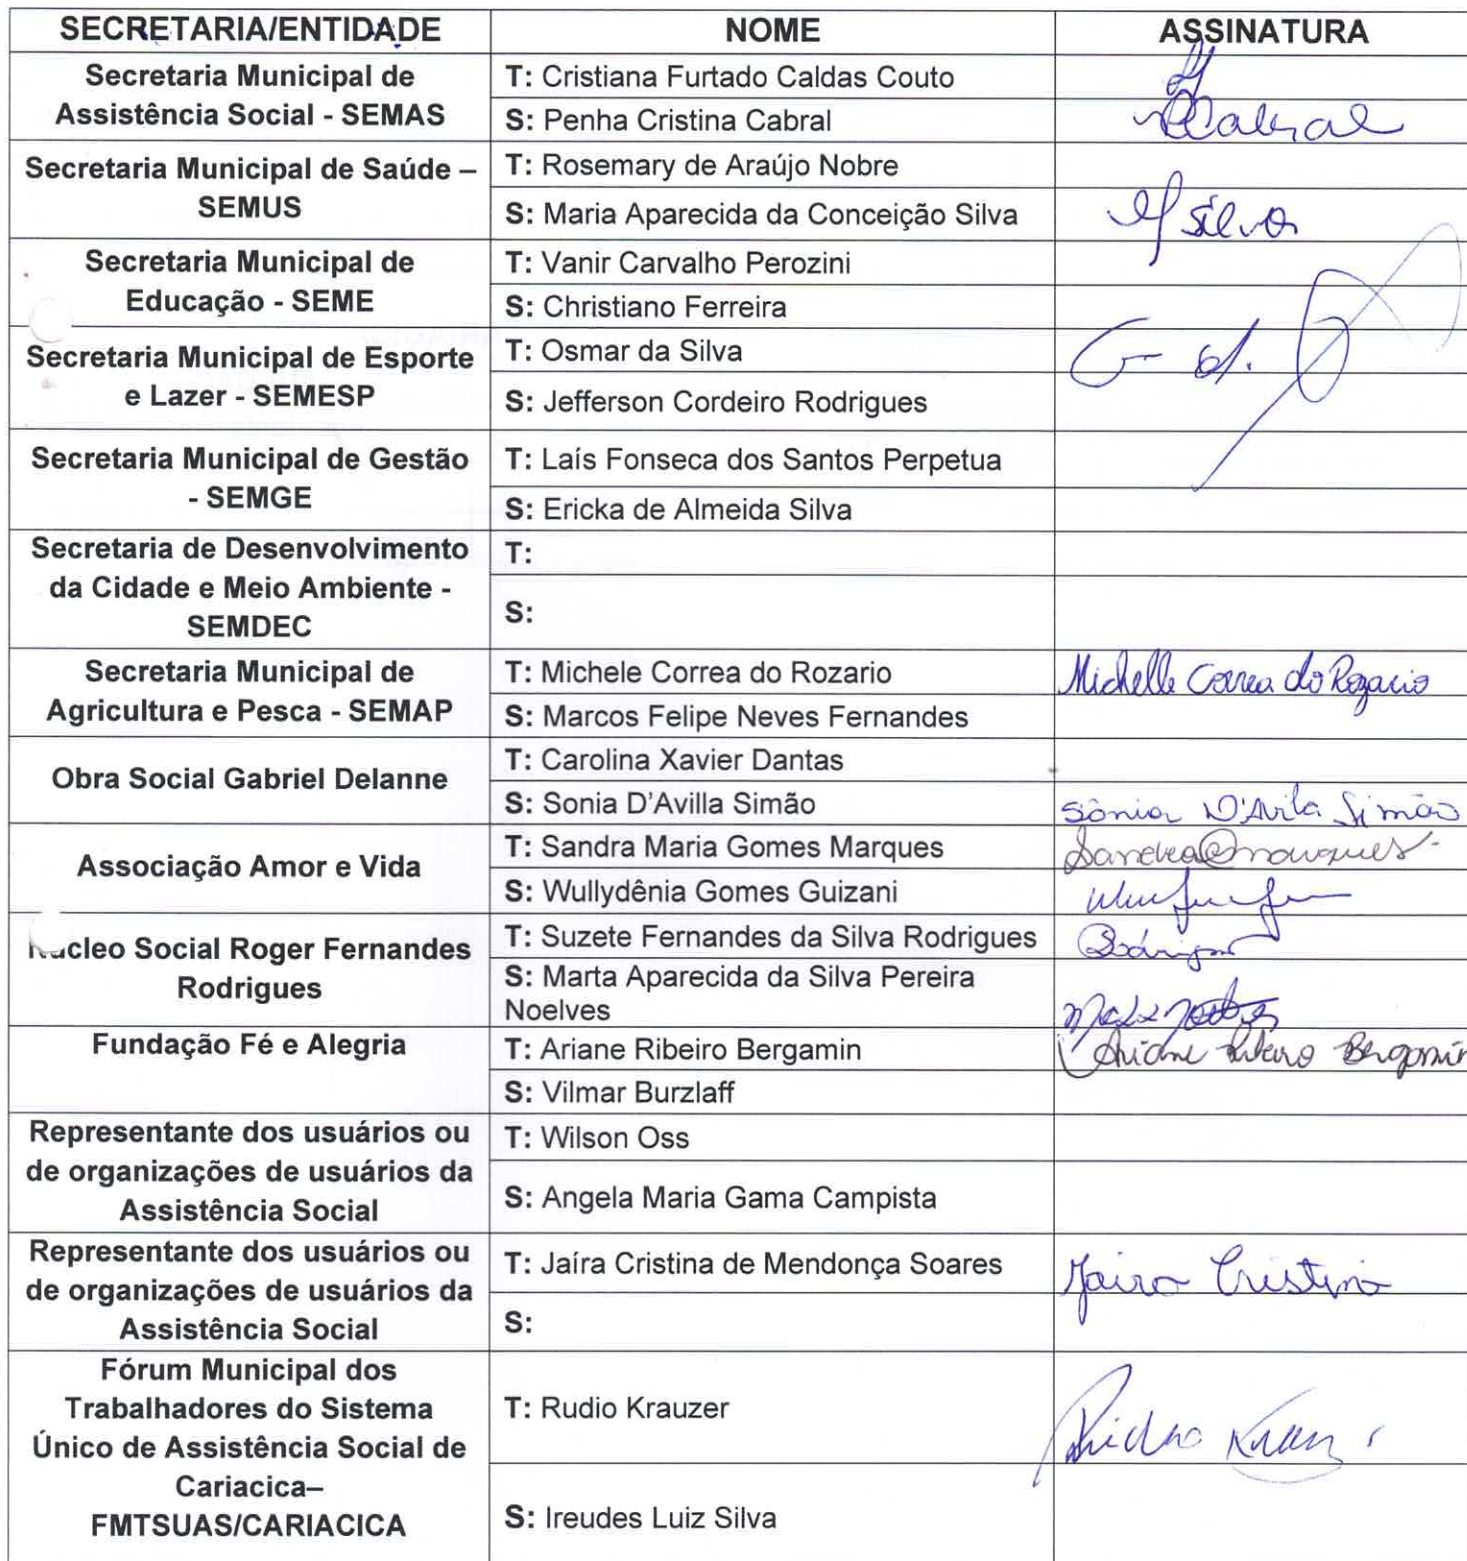 SECRETARIA/ENTIDADE NOME ASSINATURA
Secretaria Municipal de
Assistência Social - SEMAS
T: Cristiana Furtado Caldas Couto
S: Penha Cristina Cabral
Cabral
Secretaria Municipal de Saúde –
SEMUS
T: Rosemary de Araújo Nobre
S: Maria Aparecida da Conceição Silva
Silva
Secretaria Municipal de
Educação - SEME
T: Vanir Carvalho Perozini
S: Christiano Ferreira
Secretaria Municipal de Esporte
e Lazer - SEMESP
T: Osmar da Silva
S: Jefferson Cordeiro Rodrigues
Secretaria Municipal de Gestão
- SEMGE
T: Laís Fonseca dos Santos Perpetua
S: Ericka de Almeida Silva
Secretaria de Desenvolvimento
da Cidade e Meio Ambiente -
SEMDEC
T:
S:
Secretaria Municipal de
Agricultura e Pesca - SEMAP
T: Michele Correa do Rozario
Michelle Correa do Rozario
S: Marcos Felipe Neves Fernandes
Obra Social Gabriel Delanne
T: Carolina Xavier Dantas
S: Sonia D'Avilla Simão
Sônia D'Avila Simão
Associação Amor e Vida
T: Sandra Maria Gomes Marques
Sandra Marques
S: Wullydênia Gomes Guizani
Núcleo Social Roger Fernandes
Rodrigues
T: Suzete Fernandes da Silva Rodrigues
Rodrigues
S: Marta Aparecida da Silva Pereira
Noelves
Fundação Fé e Alegria
T: Ariane Ribeiro Bergamin
Ariane Ribeiro Bergamin
S: Vilmar Burzlaff
Representante dos usuários ou
de organizações de usuários da
Assistência Social
T: Wilson Oss
S: Angela Maria Gama Campista
Representante dos usuários ou
de organizações de usuários da
Assistência Social
T: Jaíra Cristina de Mendonça Soares
Jaira Cristina
S:
Fórum Municipal dos
Trabalhadores do Sistema
Único de Assistência Social de
Cariacica–
FMTSUAS/CARIACICA
T: Rudio Krauzer
S: Ireudes Luiz Silva